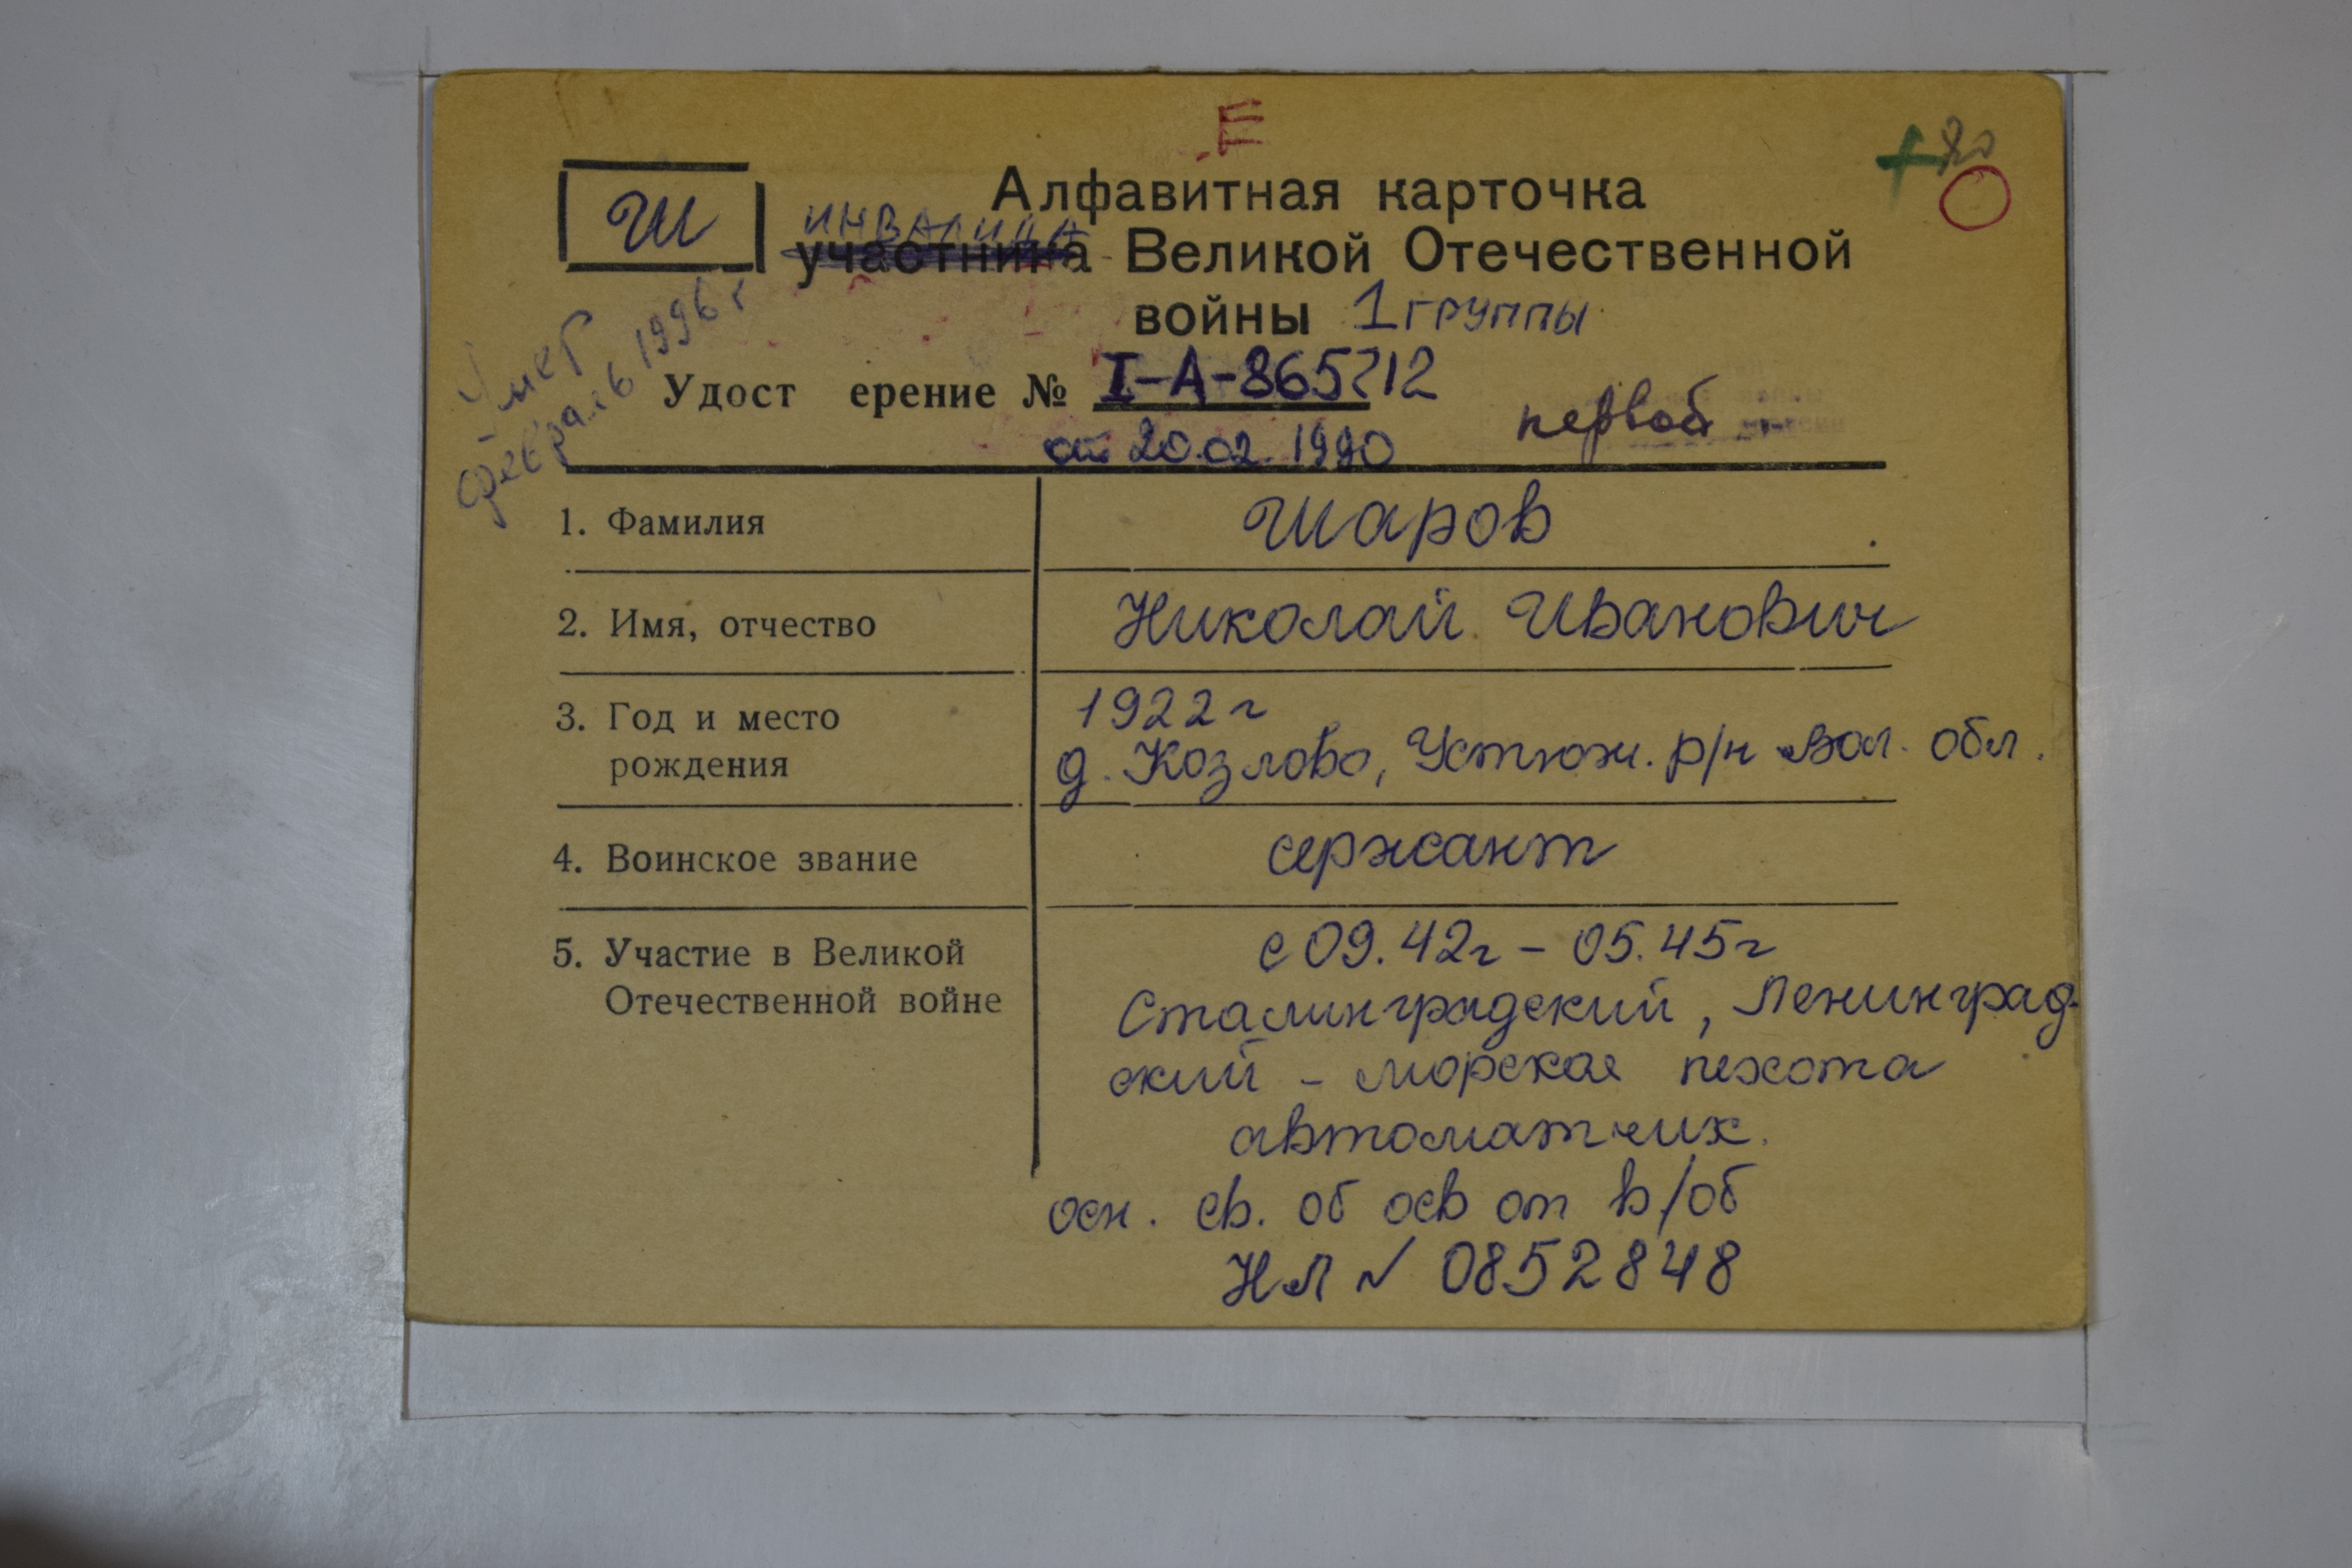 Е
+
Ш
Алфавитная карточка
инвалида
участника Великой Отечественной
войны 1 группы
Умер
февраль 1996 г
Удост ерение № I-А-865712
от 20.02.1990
первой
1. Фамилия Шаров
2. Имя, отчество Николай Иванович
3. Год и место 1922 г
рождения д. Козлово, Устюж. р/н Вол. обл.
4. Воинское звание сержант
5. Участие в Великой с 09.42г - 05.45г
Отечественной войне Сталинградский, Ленинград-
ский - морская пехота
автоматчик.
осн. св. об осв от в/об
НЛ № 0852848